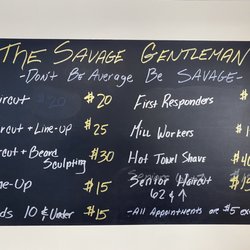 THE SAVAGE GENTLEMAN
-DON'T BE AVERAGE BE SAVAGE-
ircut $20
rcut + LINE-UP $25
rcut + BEARD SCULPTING $30
NE-UP $15
ds 10 & UNDER $15
FIRST RESPONDERS $
MILL WORKERS $
HOT TOWEL SHAVE $40
SENIOR HAIRCUT $12
62 & ↑
-ALL APPOINTMENTS ARE $5